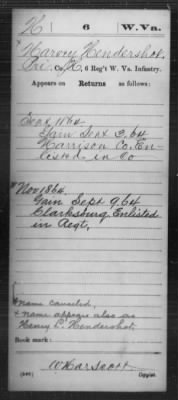 H | 6 | W. Va.
Harvey Hendershot,
Pri., Co. K, 6 Reg't W. Va. Infantry.
Appears on Returns as follows:
Sept 1864
Gain Sept 3, 64
Harrison Co. En-
listed in Co
*Nov 1864.
Gain Sept 9, 64
Clarksburg, Enlisted
in Regt.
* name canceled.
+ name appears also as
Henry C. Hendershot.
Book mark:
(546)
Copyist.